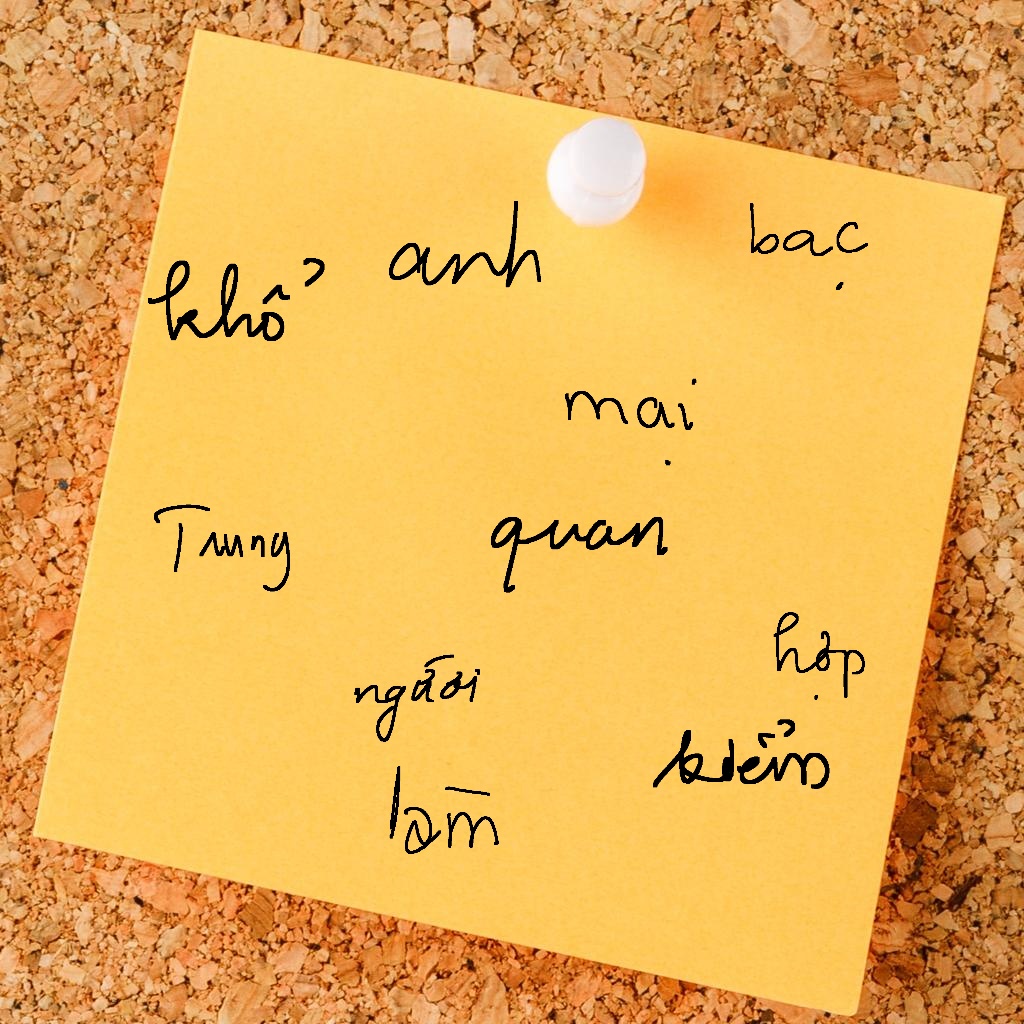 khổ anh bạc
mại
Trung quan
hợp
người
kiểm
làm